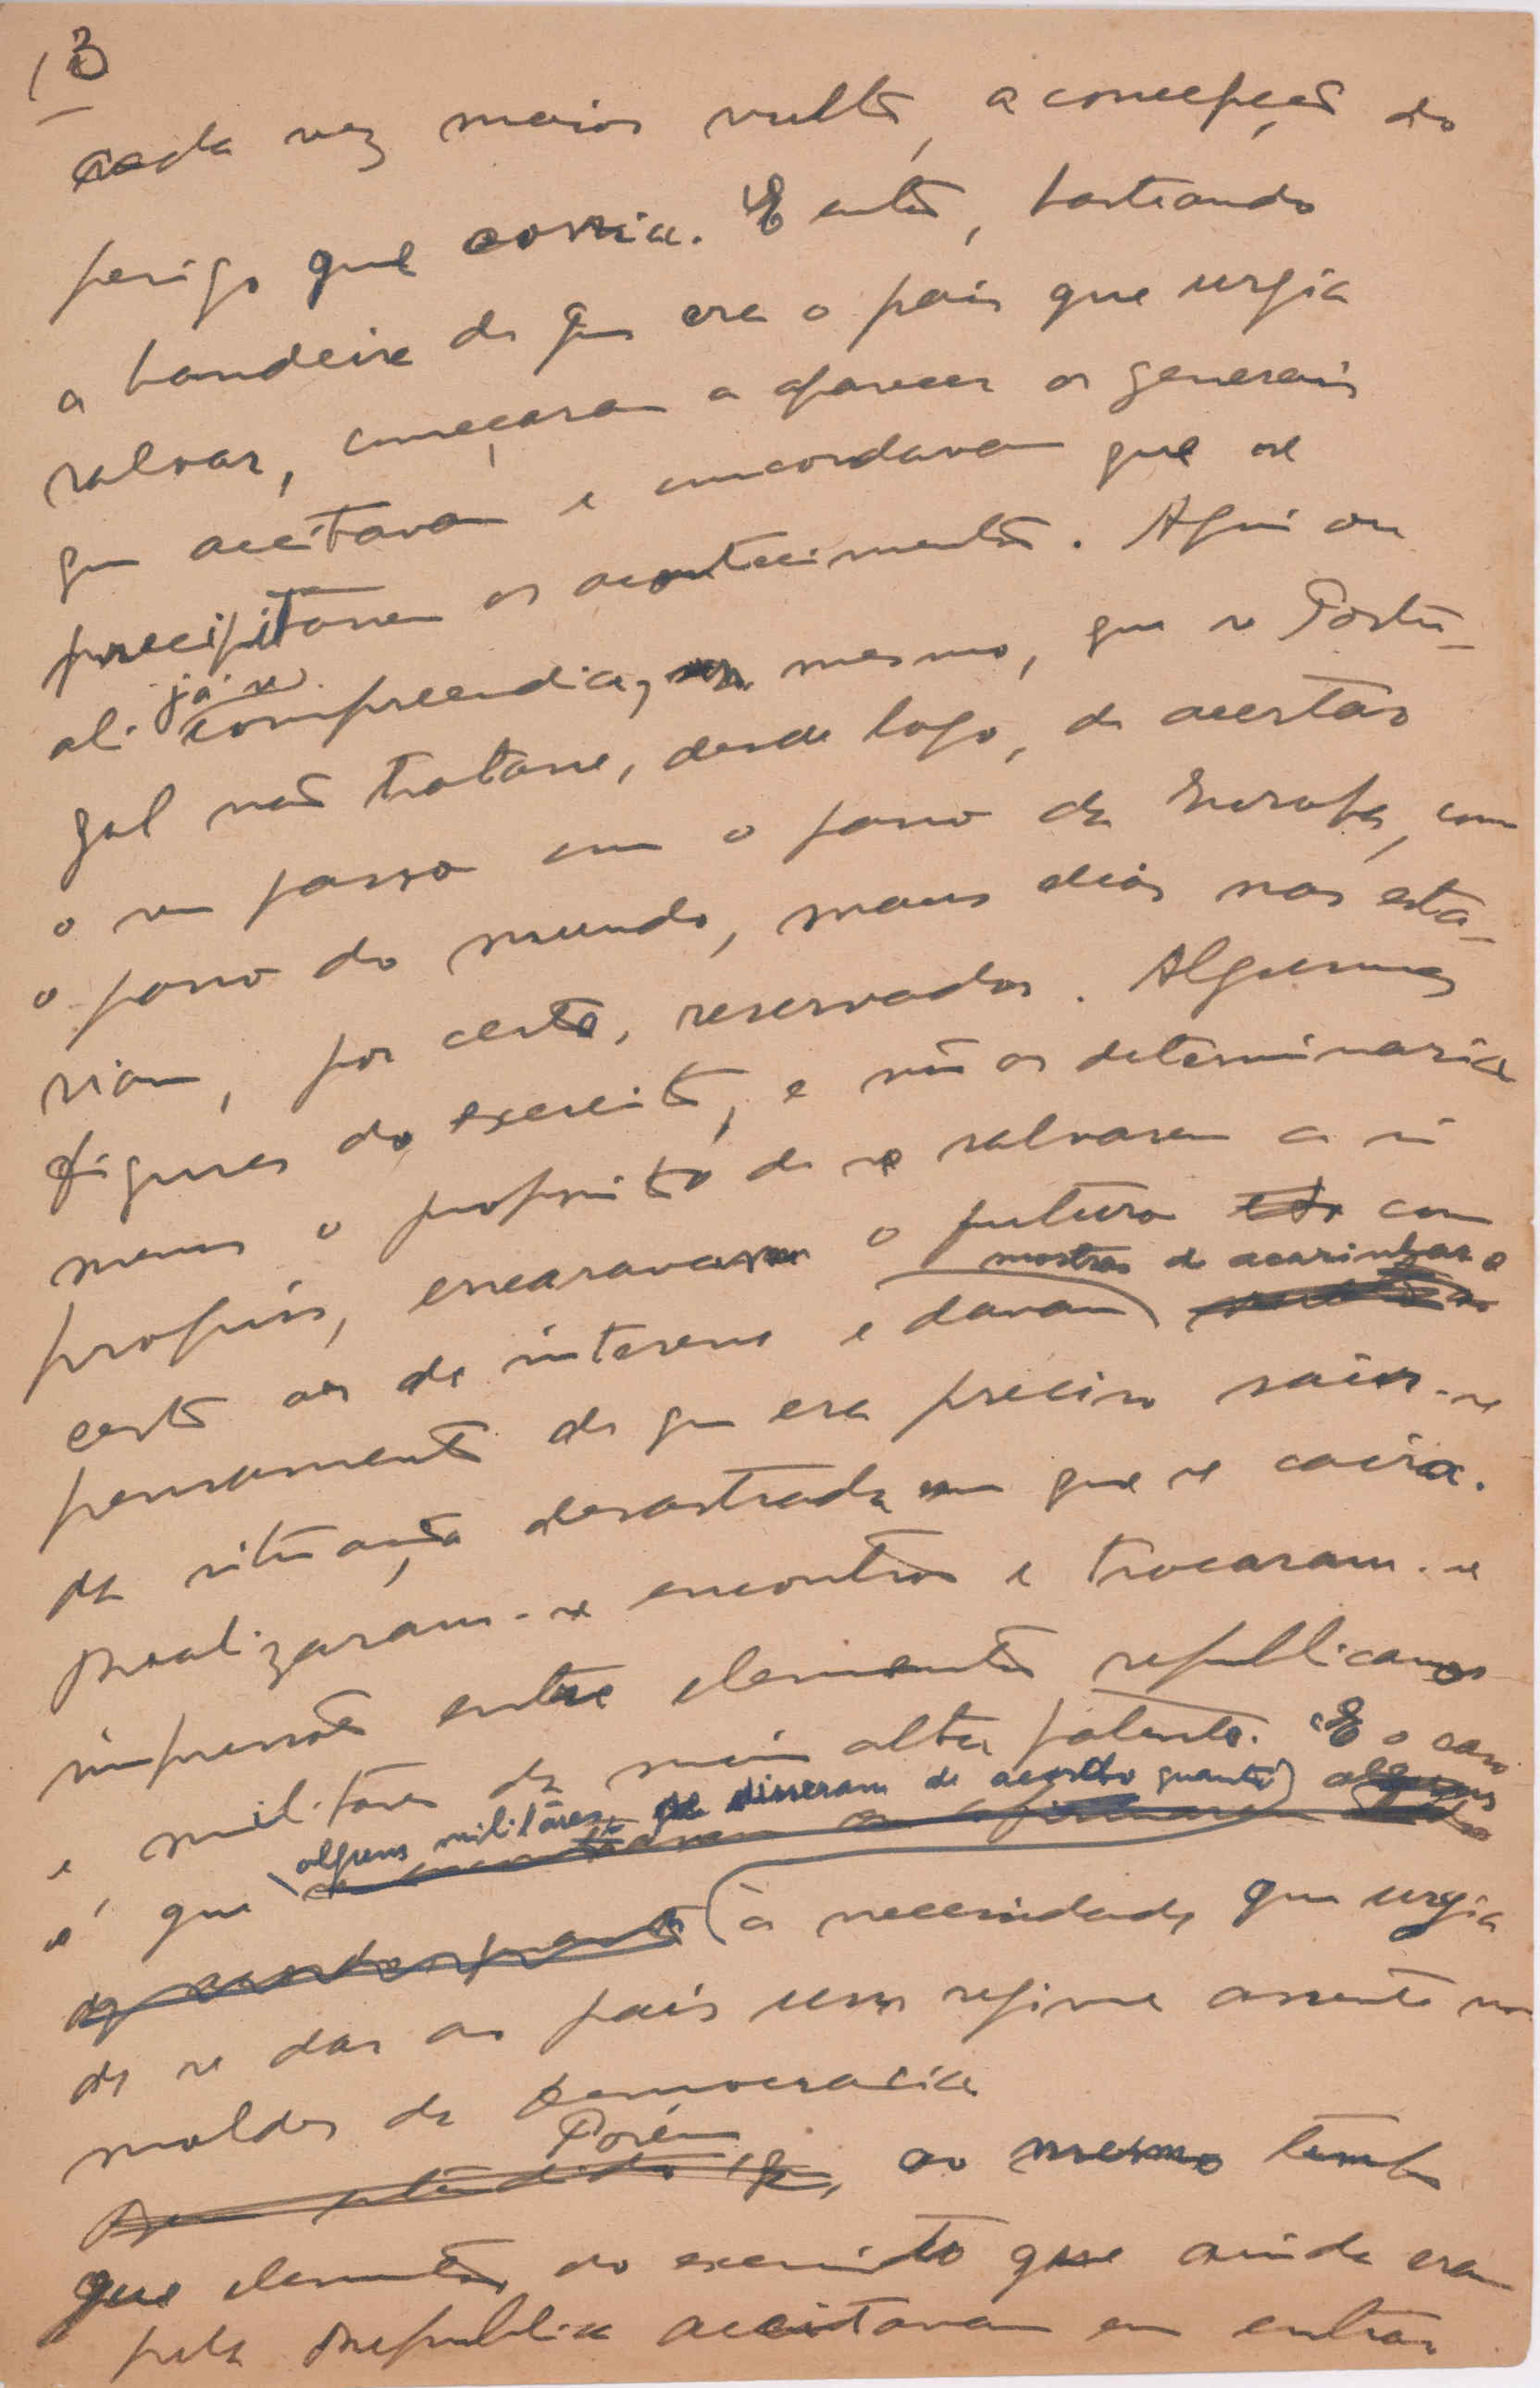 13
cada vez maior vulto, a concepção do
perigo que corria. E então, hasteando
a bandeira de que era o país que urgia
salvar, começaram a aparecer os generais
que aceitavam e concordavam que se
precipitassem os acontecimentos. Aqui ou
ali já se compreendia, mesmo, que se Portu-
gal não tratasse, desde logo, de acertar
o seu passo com o passo da Europa, com
o passo do mundo, maus dias nos esta-
riam, por certo, reservados. Algumas
figuras do exercito, e não as determinaria
menos o proposito de se salvarem a si
proprios, encaravam o futuro com
certo ar de interesse e davam mostras de acarinhar o
pensamento de que era preciso sair-se
da situação desastrada em que se caira.
Realizaram-se encontros e trocaram-se
impressões entre elementos republicanos
e militares da mais alta patente. E o caso
é que alguns militares se disseram de acordo quanto
à necessidade que urgia
de se dar ao país um regime assente nos
moldes da democracia
Porém, ao mesmo tempo
que elementos do exercito que ainda eram
pela Republica aceitavam em entrar